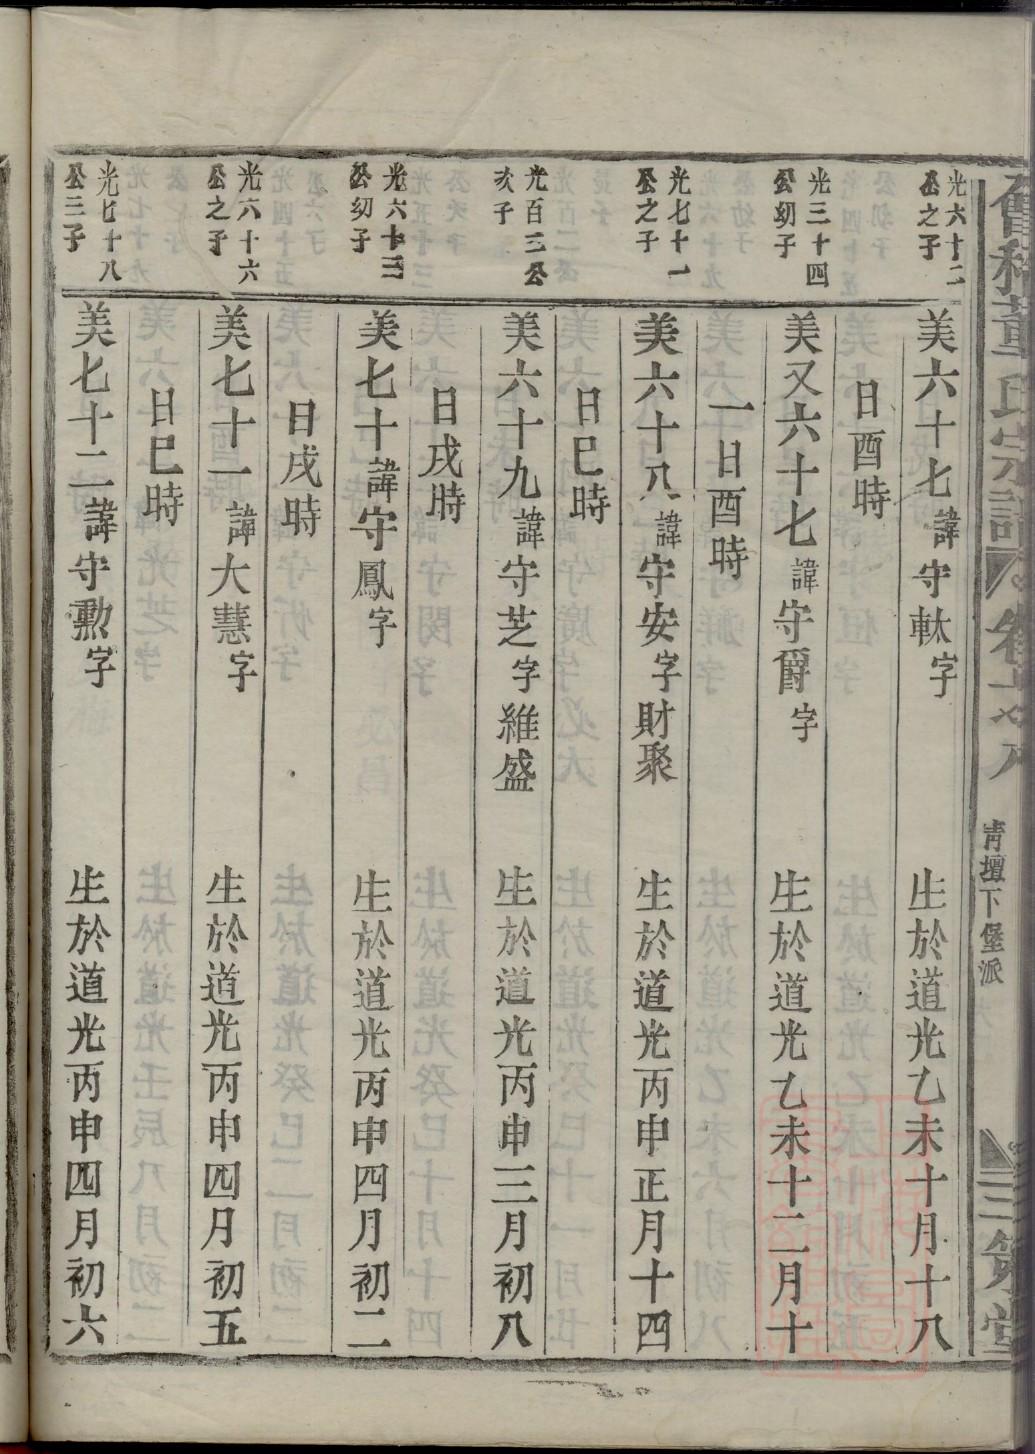 會稽董氏宗譜
青壇下堡派
三策堂
光六十二
公之子
美六十七諱守軚字 生於道光乙未十月十八
日酉時
光三十四
公幼子
美又六十七諱守爵字 生於道光乙未十二月十
一日酉時
光七十一
公之子
美六十八諱守安字財聚 生於道光丙申正月十四
日巳時
光百三公
次子
美六十九諱守芝字維盛 生於道光丙申三月初八
日戌時
光六十三
公幼子
美七十諱守鳳字 生於道光丙申四月初二
日戌時
光六十六
公之子
美七十一諱大慧字 生於道光丙申四月初五
日巳時
光七十八
公三子
美七十二諱守勲字 生於道光丙申四月初六